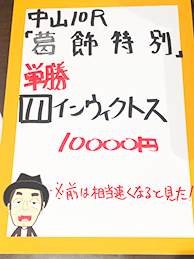 中山10R
「葛飾特別」
単勝
11インヴィクトス
10000円
※前は相当速くなると見た!